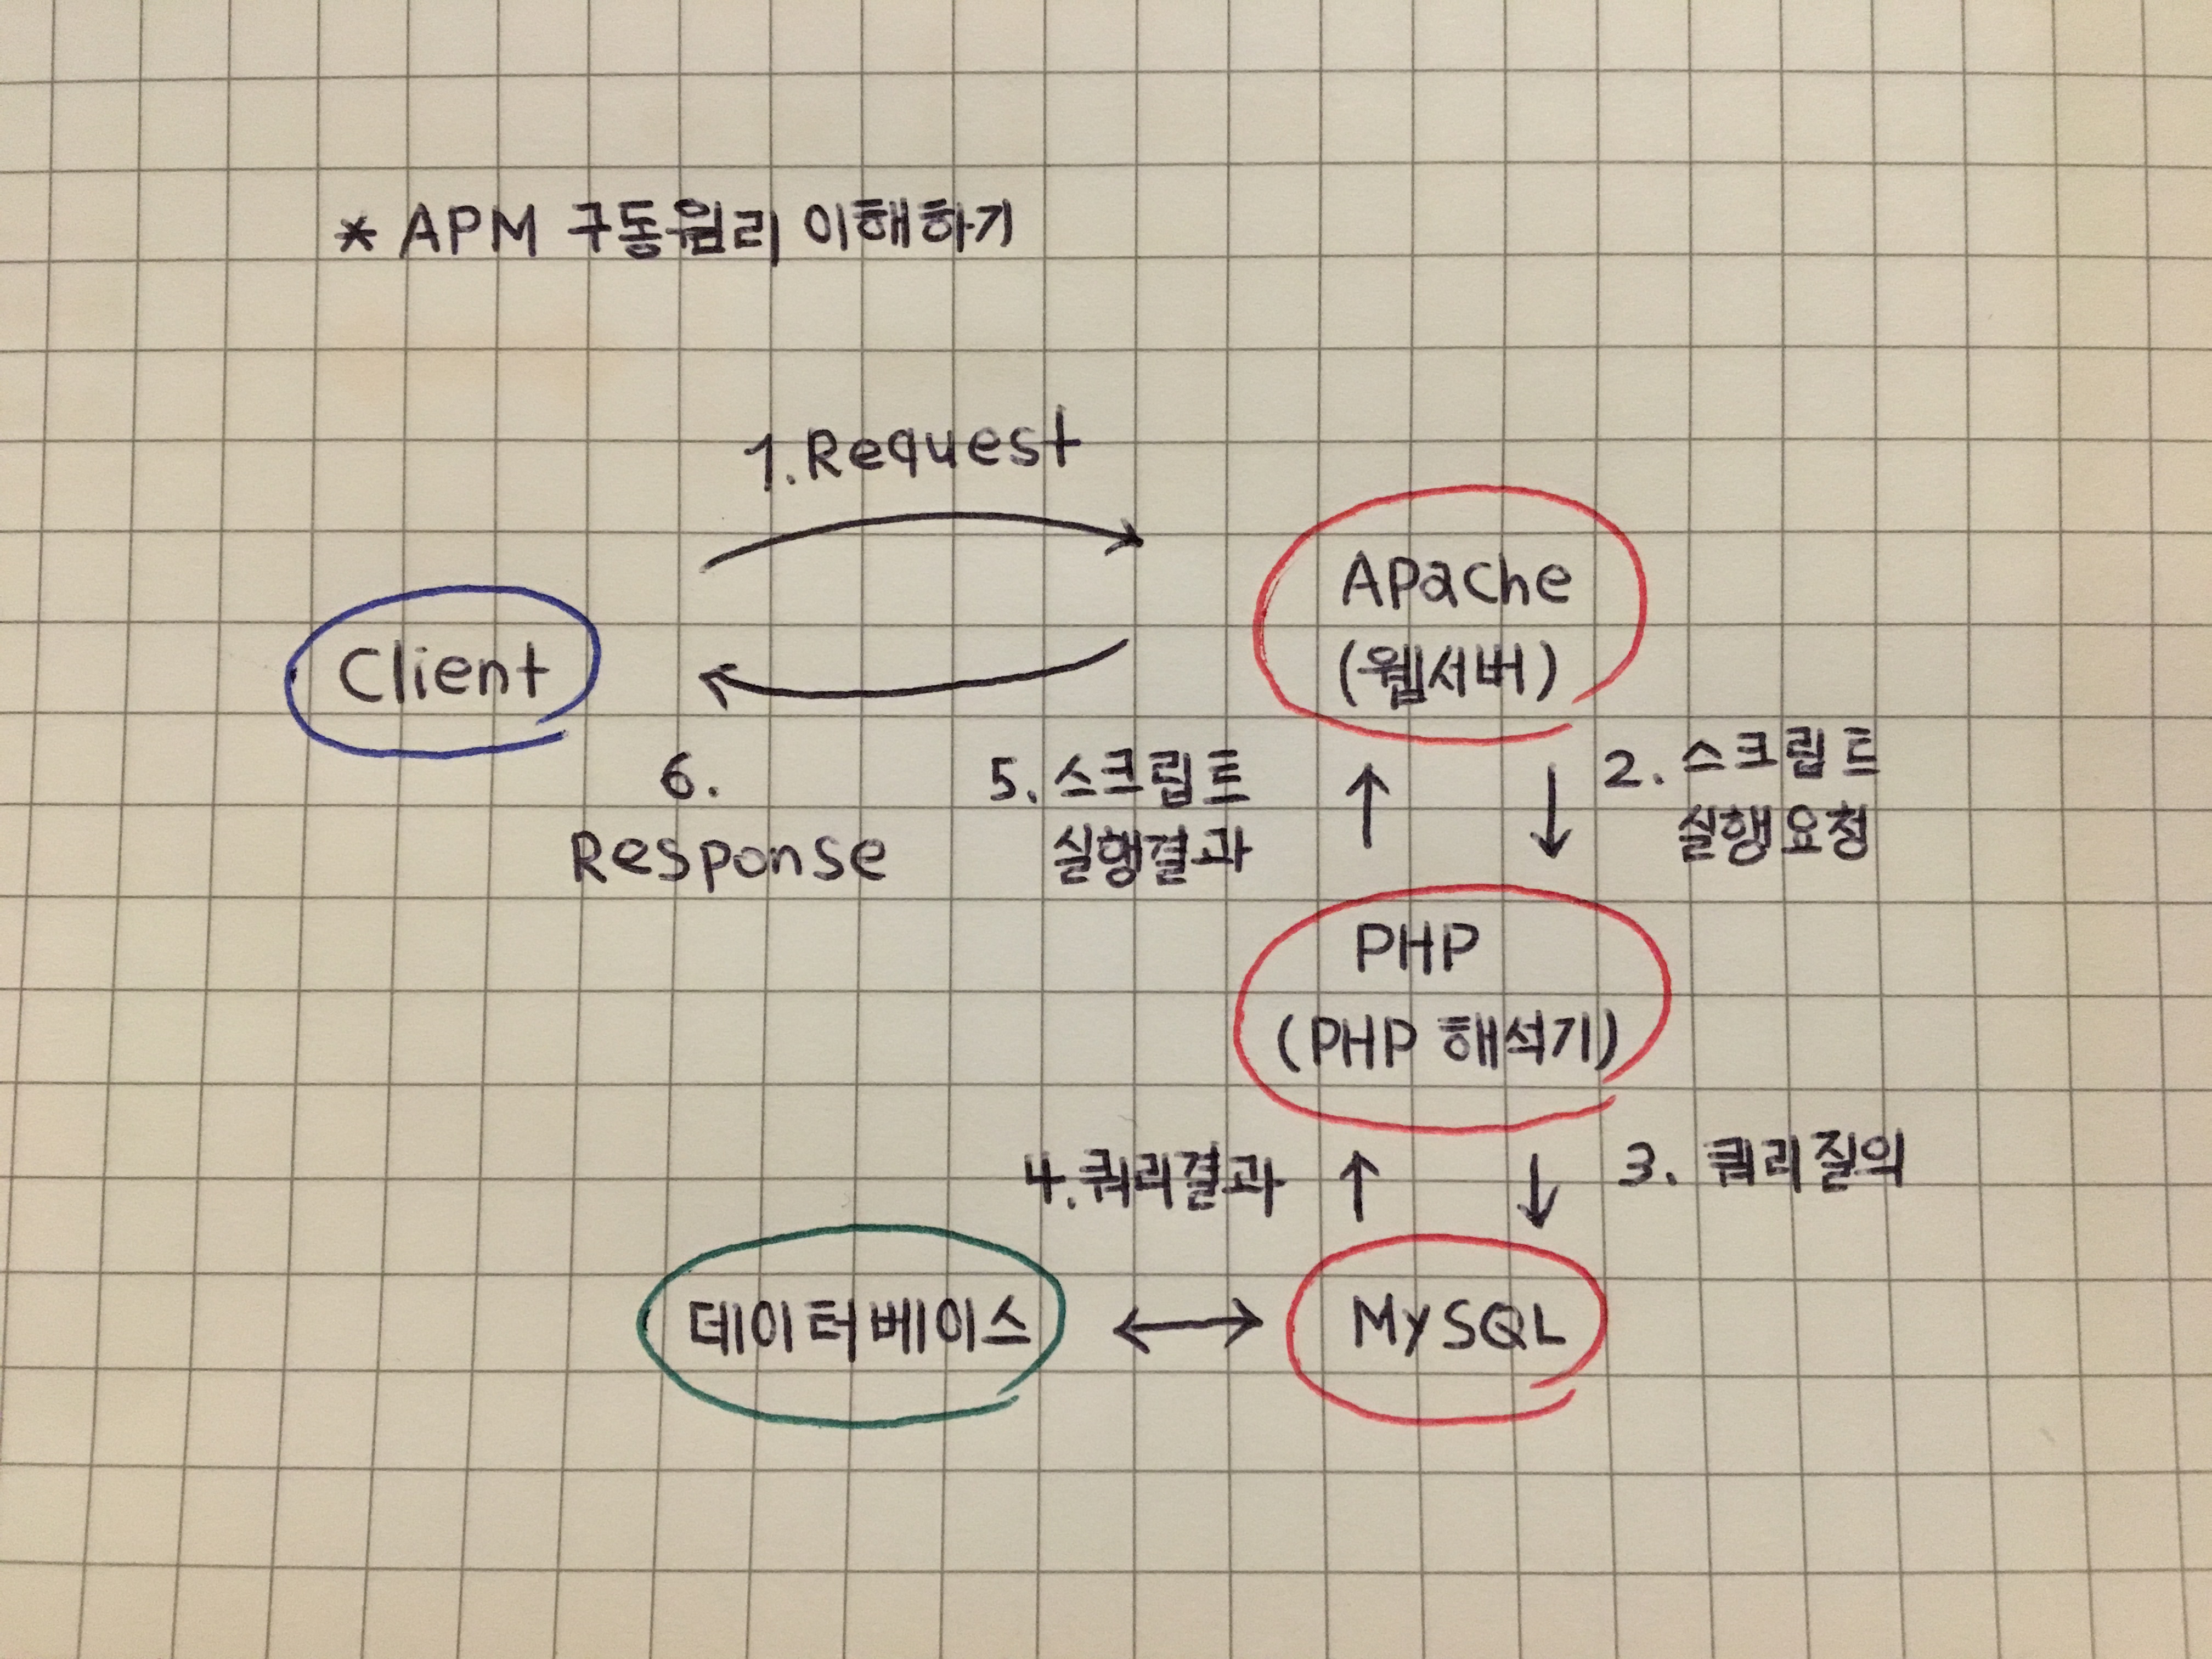 * APM 구동원리 이해하기
1.Request
Client
Apache
(웹서버)
6.
Response
5. 스크립트
실행결과
2. 스크립트
실행요청
PHP
(PHP 해석기)
4.쿼리결과
3. 쿼리질의
데이터베이스
MySQL